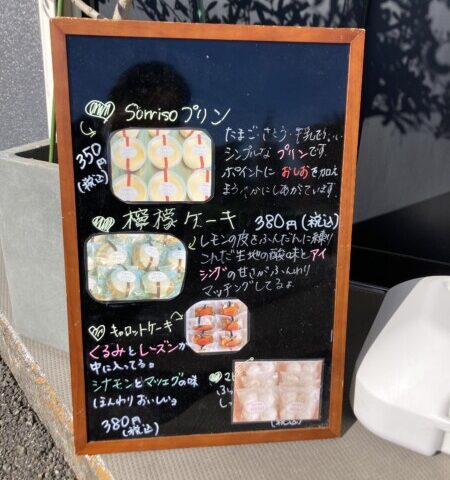 Sorrisoプリン
350円
(税込)
たまご・さとう・牛乳
シンプルな プリンです
ポイントに おしおを加え
まろやかにしあがています。
檸檬ケーキ 380円(税込)
レモンの皮をふんだんに練り
こんだ生地の酸味とアイ
シングの甘さがふんわり
マッチングしてるよ
キャロットケーキ
くるみとレーズンが
中に入ってる。
シナモンとナツメグの味
ほんわりおいしい♪
380円
(税込)
(税込)